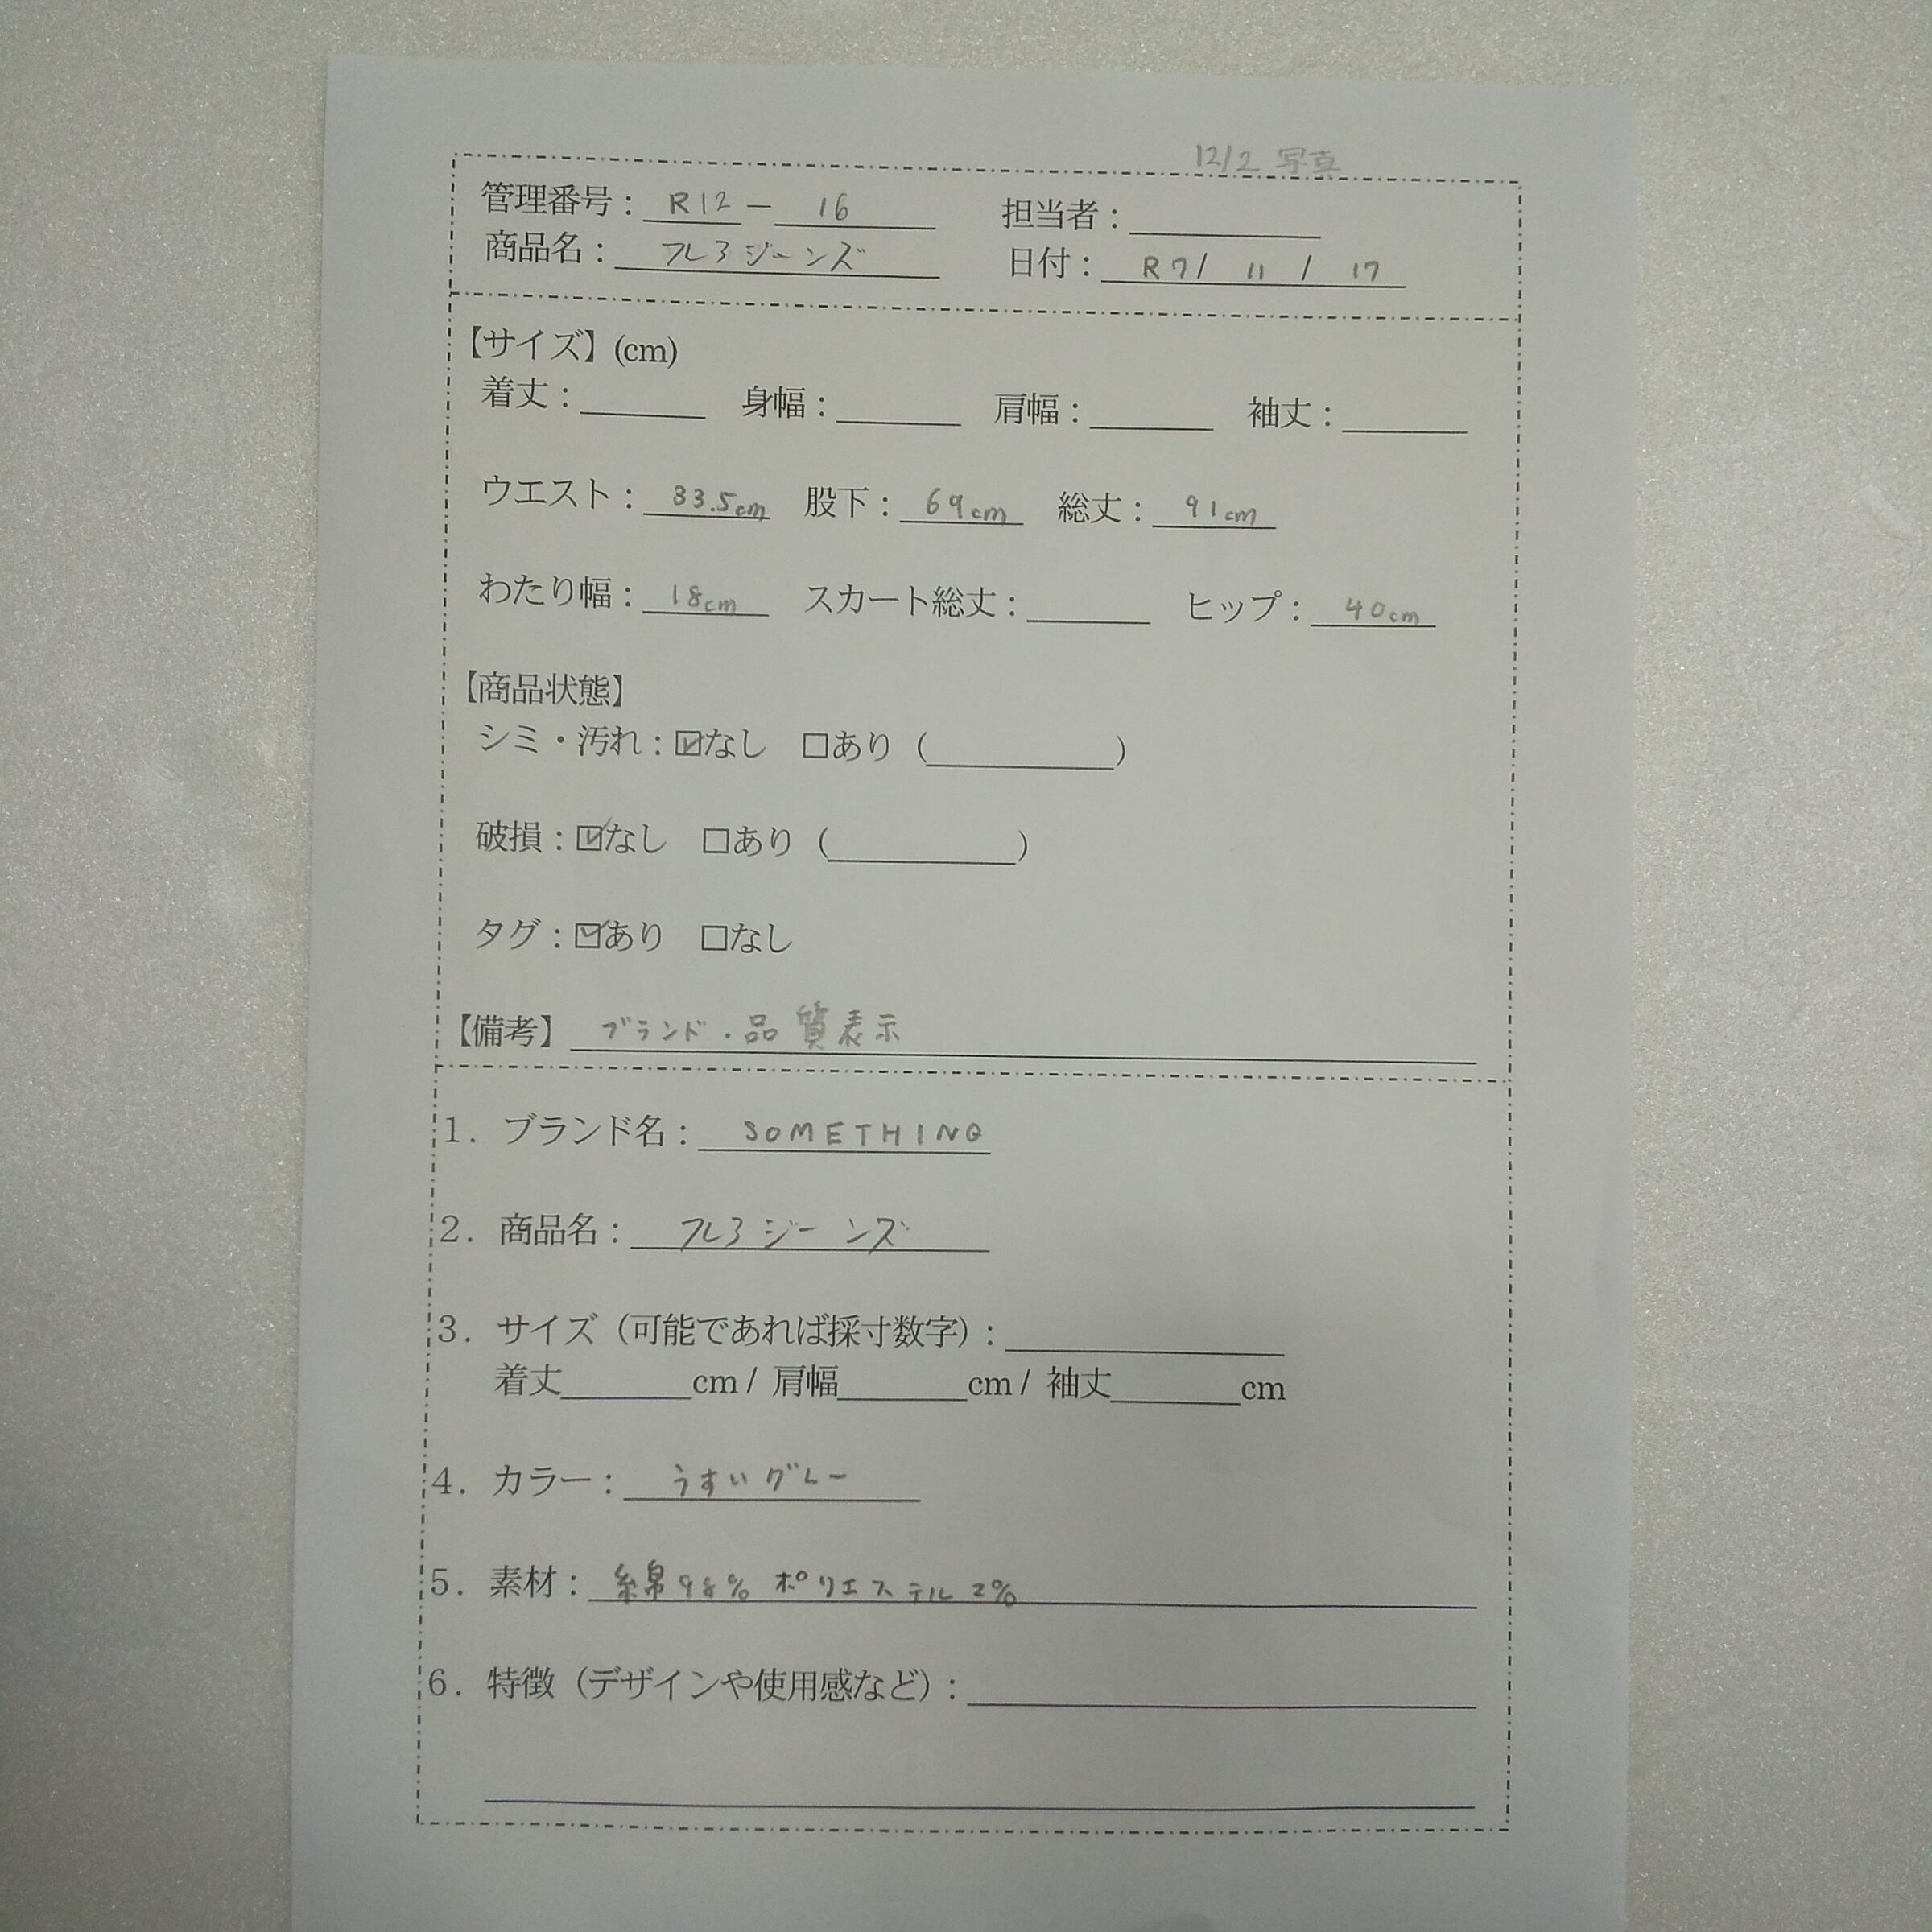 12/2 写真
管理番号：R12－16 担当者：
商品名：フレアジーンズ 日付：R7/11/17
【サイズ】(cm)
着丈： 身幅： 肩幅： 袖丈：
ウエスト：33.5cm 股下：69cm 総丈：91cm
わたり幅：18cm スカート総丈： ヒップ：40cm
【商品状態】
シミ・汚れ：☑なし □あり（ ）
破損：☑なし □あり（ ）
タグ：☑あり □なし
【備考】ブランド・品質表示
1. ブランド名：SOMETHING
2. 商品名：フレアジーンズ
3. サイズ（可能であれば採寸数字）：
着丈 cm / 肩幅 cm / 袖丈 cm
4. カラー：うすいグレー
5. 素材：綿98% ポリエステル2%
6. 特徴（デザインや使用感など）：